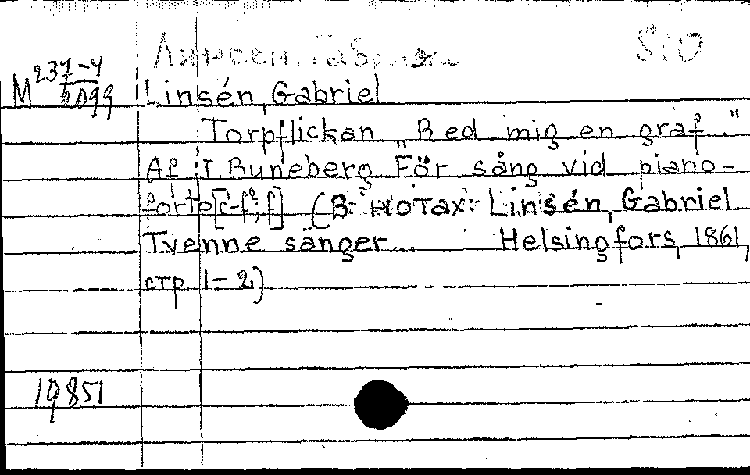 Линсен, Габриэль
M 237-4
2099
Linsén, Gabriel
Torpflickan „Red mig en graf..."
Af J. Runeberg För sång vid piano-
forte [c-f²; f] (В нотах: Linsén, Gabriel
Tvenne sånger... Helsingfors, 1861,
стр 1-2)
19851